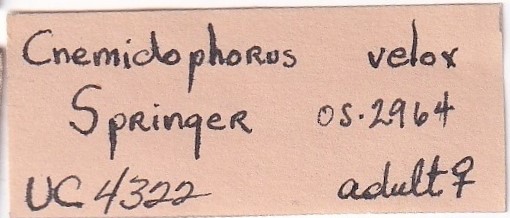 Cnemidophorus velox
Springer os.2964
UC 4322 adult ♀